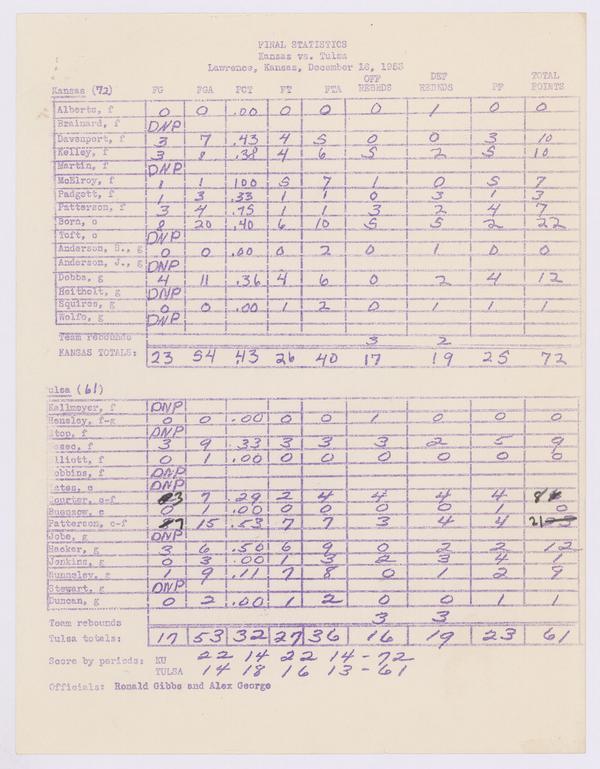 FINAL STATISTICS
Kansas vs. Tulsa
Lawrence, Kansas, December 18, 1953
OFF DEF TOTAL
Kansas (72) FG FGA PCT FT FTA REBNDS REBNDS PF POINTS
Alberts, f 0 0 .00 0 0 0 1 0 0
Brainard, f DNP
Davenport, f 3 7 .43 4 5 0 0 3 10
Kelley, f 3 8 .38 4 6 5 2 5 10
Martin, f DNP
McElroy, f 1 1 100 5 7 1 0 5 7
Padgett, f 1 3 .33 1 1 0 3 1 3
Patterson, f 3 4 .75 1 1 3 2 4 7
Born, c 8 20 .40 6 10 5 5 2 22
Toft, c DNP
Anderson, H., g 0 0 .00 0 2 0 1 0 0
Anderson, J., g DNP
Dobbs, g 4 11 .36 4 6 0 2 4 12
Heitholt, g DNP
Squires, g 0 0 .00 1 2 0 1 1 1
Wolfe, g DNP
Team rebounds 3 2
KANSAS TOTALS: 23 54 43 26 40 17 19 25 72
ulsa (61)
Kallmeyer, f DNP
Hensley, f-g 0 0 .00 0 0 1 0 0 0
DNP
3 9 .33 3 3 3 2 5 9
lliott, f 0 1 .00 0 0 0 0 0 0
obbins, f DNP
ates, c DNP
ourter, c-f 3 7 .29 2 4 4 4 4 8
0 1 .00 0 0 0 0 1 0
Patterson, c-f 7 15 .53 7 7 3 4 4 21
Jobe, g DNP
Hacker, g 3 6 .50 6 9 0 2 2 12
Jenkins, g 0 3 .00 1 3 2 3 4 1
Nunneley, g 1 9 .11 7 8 0 1 2 9
Stewart, g DNP
Duncan, g 0 2 .00 1 2 0 0 1 1
Team rebounds 3 3
Tulsa totals: 17 53 32 27 36 16 19 23 61
Score by periods: KU 22 14 22 14 - 72
TULSA 14 18 16 13 - 61
Officials: Ronald Gibbs and Alex George